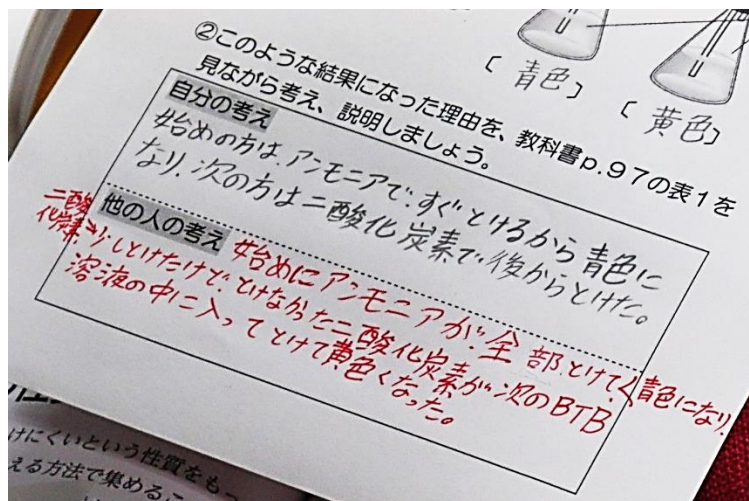 〔青色〕
〔黄色〕
②このような結果になった理由を、教科書p.97の表1を
見ながら考え、説明しましょう。
自分の考え
始めの方は、アンモニアで、すぐとけるから青色に
なり、次の方は二酸化炭素で、後からとけた。
他の人の考え
始めにアンモニアが、全部とけて、青色になり、
二酸化炭素は少しとけただけで、とけなかった二酸化炭素が次のBTB
溶液の中に入ってとけて黄色くなった。
けにくいという性質をもっ
える方法で集める